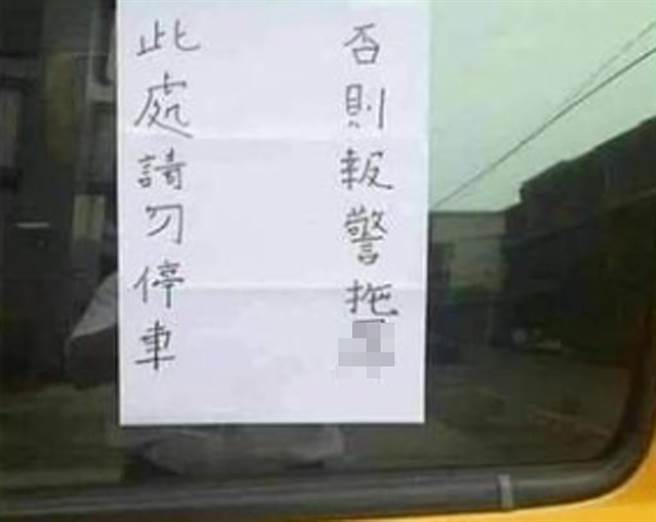 此處請勿停車
否則報警拖